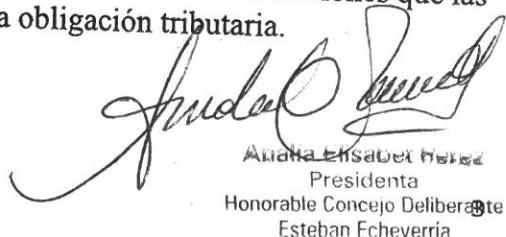 que las
a obligación tributaria.
Analia Elisabet Perez
Presidenta
Honorable Concejo Deliberante
3
Esteban Echeverría